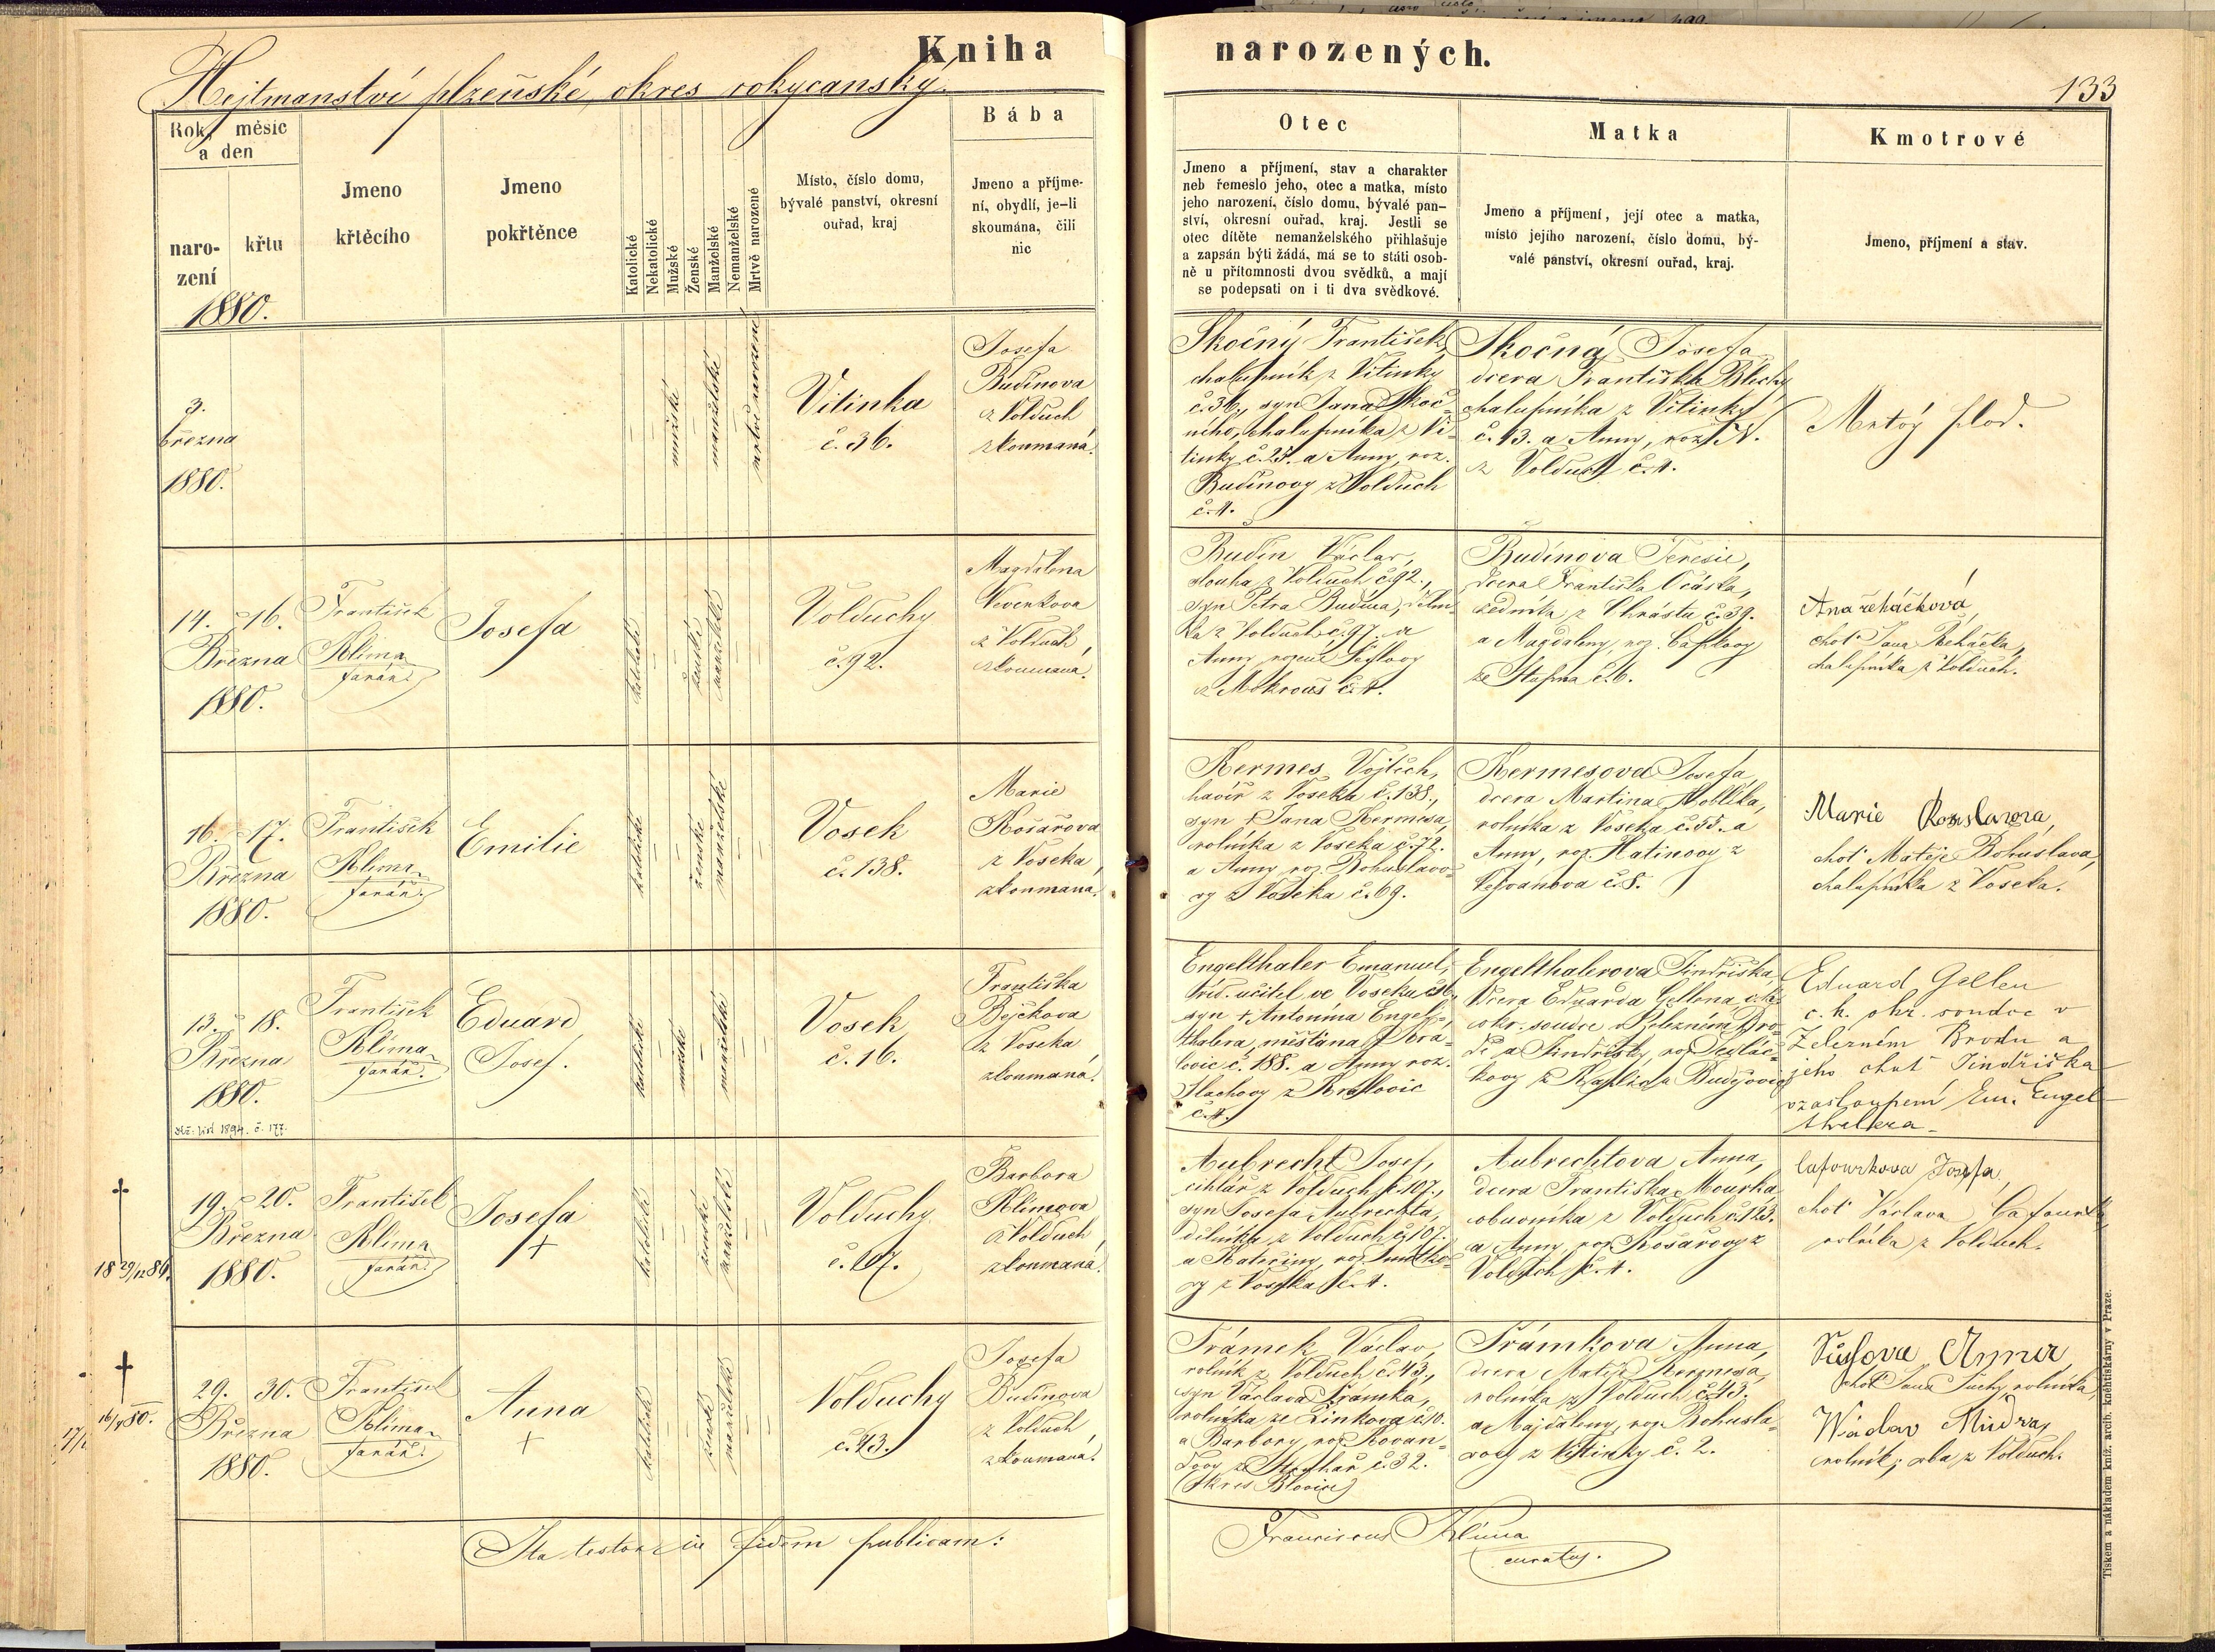 Kniha narozených.
Hejtmanství plzeňské, okres rokycanský.
133
Rok, měsíc a den
narození
křtu
Jmeno křtěcího
Jmeno pokřtěnce
Katolické
Nekatolické
Mužské
Ženské
Manželské
Nemanželské
Mrtvě narozené
Místo, číslo domu,
bývalé panství, okresní
ouřad, kraj
Bába
Jmeno a příjme-
ní, obydlí, je-li
skoumána, čili
nic
Otec
Jmeno a příjmení, stav a charakter
neb řemeslo jeho, otec a matka, místo
jeho narození, číslo domu, bývalé pan-
ství, okresní ouřad, kraj. Jestli se
otec dítěte nemanželského přihlašuje
a zapsán býti žádá, má se to státi osob-
ně u přítomnosti dvou svědků, a mají
se podepsati on i ti dva svědkové.
Matka
Jmeno a příjmení, její otec a matka,
místo jejího narození, číslo domu, bý-
valé panství, okresní ouřad, kraj.
Kmotrové
Jmeno, příjmení a stav.
1880.
3.
března
1880.
mužské
manželské
mrtvě narozené
Vitinka
č. 36.
Josefa
Budínova
z Volduch
zkoumaná.
Skočný František,
chalupník z Vitinky
č. 36., syn Jana Skoč-
ného, chalupníka z Vi-
tinky č. 25. a Anny, roz.
Budínovy z Volduch
č. 1.
Skočná Josefa
dcera Františka Blechy
chalupníka z Vitinky
č. 13. a Anny, roz. N.
z Volduch č. 1.
Mrtvý plod.
14. 16.
Března
1880.
František
Klima
farář.
Josefa
katolické
ženské
manželské
Volduchy
č. 92.
Magdalena
z Volduch
zkoumaná.
Budín Václav,
slouha z Volduch č. 92.,
syn Petra Budína, děln-
ka z Volduch č. 97. a
Anny rozené
z Mokrouš č. 1.
Budínova Teresie,
dcera Františka Očáska,
zedníka z Chrástu č. 39.
a Magdaleny, roz. Caplovy
ze Stupna č. 6.
Ana řeháčková,
choť Jana Řeháčka,
chalupníka z Volduch.
16. 17.
Března
1880.
František
Klima
farář.
Emilie
katolické
ženské
manželské
Vosek
č. 138.
Marie
Košařova
z Voseka
zkoumaná.
Kermes Vojtěch,
havíř z Voseka č. 138.,
syn † Jana Kermesa,
rolníka z Voseka č. 72.
a Anny roz. Bohuslavo-
vy z Voseka č. 69.
Kermesova Josefa,
dcera Martina Hoblíka,
rolníka z Voseka č. 55. a
Anny, roz. Hatinovy z
Vejvanova č. 8.
Marie
choť Matěje Bohuslava,
chalupníka z Voseka.
13. 18.
Března
1880.
František
Klima
farář.
Eduard
Josef.
katolické
mužské
manželské
Vosek
č. 16.
Františka
Bejčkova
z Voseka
zkoumaná.
Engelthaler Emanuel,
učitel ve Voseku č. 16.,
syn † Antonína Engel-
thalera, měšťana z Kra-
lovic č. 188. a Anny roz.
Hachovy z Kralovic
č. 1.
Engelthalerova Jindřiška,
dcera Eduarda Gellena, c. k.
okr. soudce v Železném Bro-
dě a Jindřišky, roz. Sedláč-
kovy z Kaplice Budějovic
Eduard Gellen
c. k. okr. soudce v
Železném Brodu a
jeho choť Jindřiška
vzastoupení Em. Engel-
thalera
1894. č. 177.
†
18 29/12 84.
19. 20.
Března
1880.
František
Klima
farář.
Josefa
†
katolické
ženské
manželské
Volduchy
č. 107.
Barbora
Klimova
z Volduch,
zkoumaná.
Aubrecht Josef,
cihlář z Volduch č. 107.,
syn Josefa Aubrechta,
dělníka z Volduch č. 107.
a Kateřiny, roz.
vy z Voseka č. 1.
Aubrechtova Anna,
dcera Františka Mourka
obuvníka z Volduch č. 123.
a Anny, roz. Košařovy z
Volduch č. 1.
Cafourkova Josefa,
choť Václava Cafourka
rolníka z Volduch.
†
16/4 80.
29. 30.
Března
1880.
František
Klima
farář.
Anna
†
katolické
ženské
manželské
Volduchy
č. 43.
Josefa
Budínova
z Volduch
zkoumaná.
Trámek Václav,
rolník z Volduch č. 43.,
syn Václava Trámka,
rolníka ze Žinkova č. 10.
a Barbory, roz. Kovan-
dovy ze č. 32.
(Okres Blovice)
Trámkova Anna,
dcera Matěje Kermesa,
rolníka z Volduch č. 43.
a Majdaleny, roz. Bohusla-
vovy z Vitinky č. 2.
Anna
choť Jana Suchy, rolníka,
Wáclav
rolník; oba z Volduch.
Ita testor in fidem publicam:
Franciscus Klima
curatus.
Tiskem a nákladem kníž. arcib. knihtiskárny v Praze.